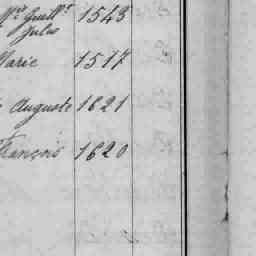 Guill.e 1543
Jules
Marie 1517
Auguste 1621
François 1620